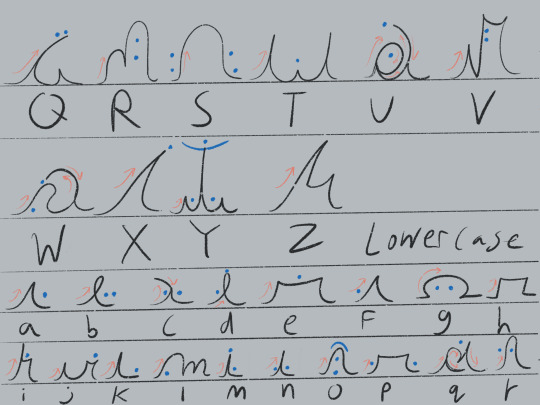 Q R S T U V
W X Y Z Lowercase
a b c d e F g h
i j k l m n o p q r